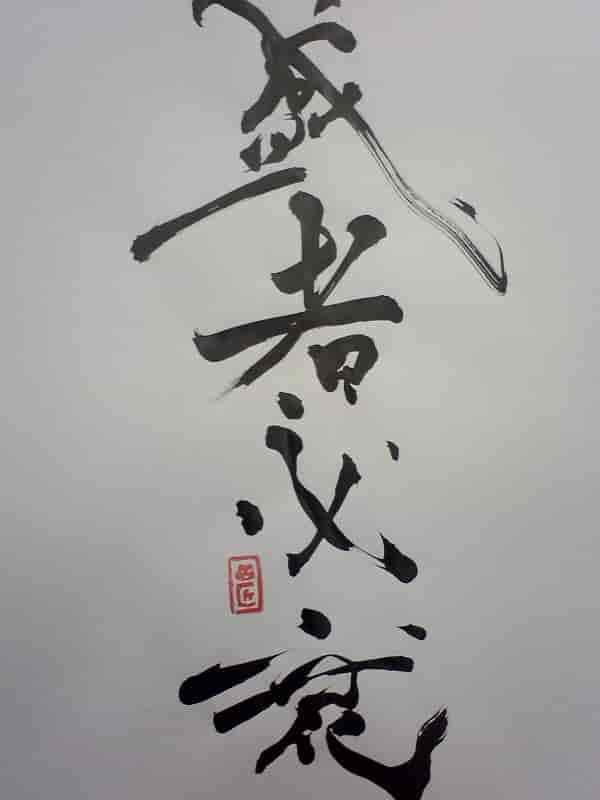 盛者必衰